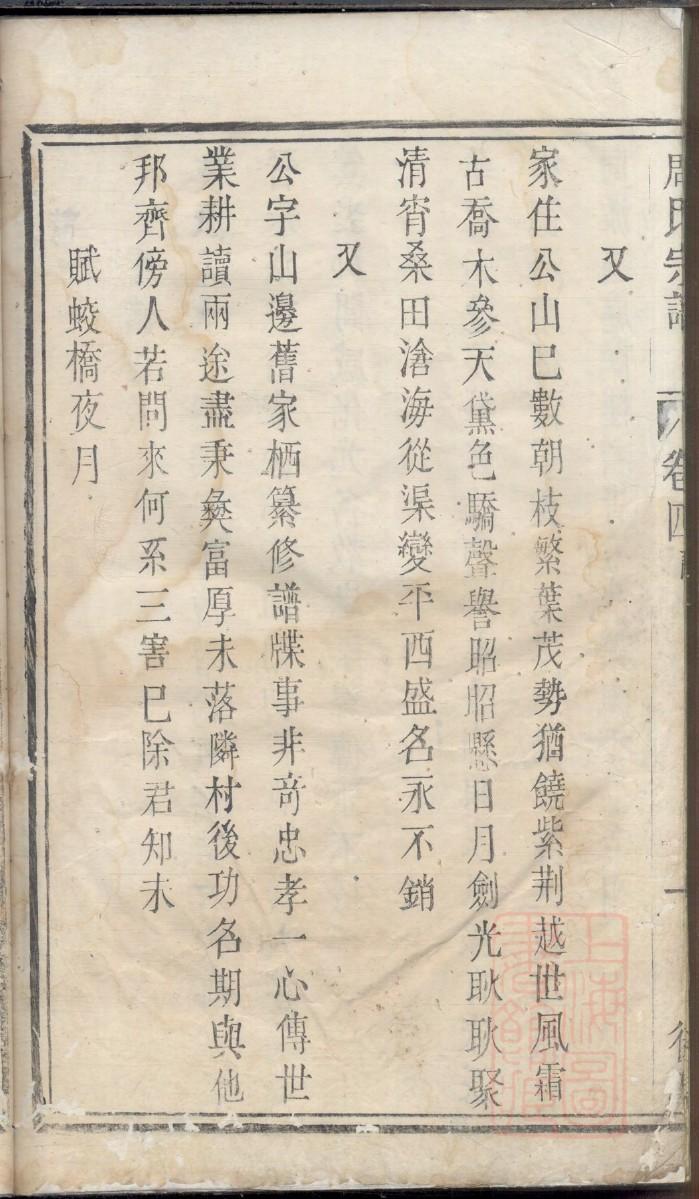 周氏宗譜 卷四
又
家住公山巳數朝枝繁葉茂勢猶饒紫荆越世風霜
古喬木參天黛色驕聲譽昭昭懸日月劍光耿耿聚
清宵桑田滄海從渠變平西盛名永不銷
又
公字山邊舊家栖纂修譜牒事非奇忠孝一心傳世
業耕讀兩途盡秉彝富厚未落隣村後功名期與他
邦齊傍人若問來何系三害巳除君知未
賦蛟橋夜月